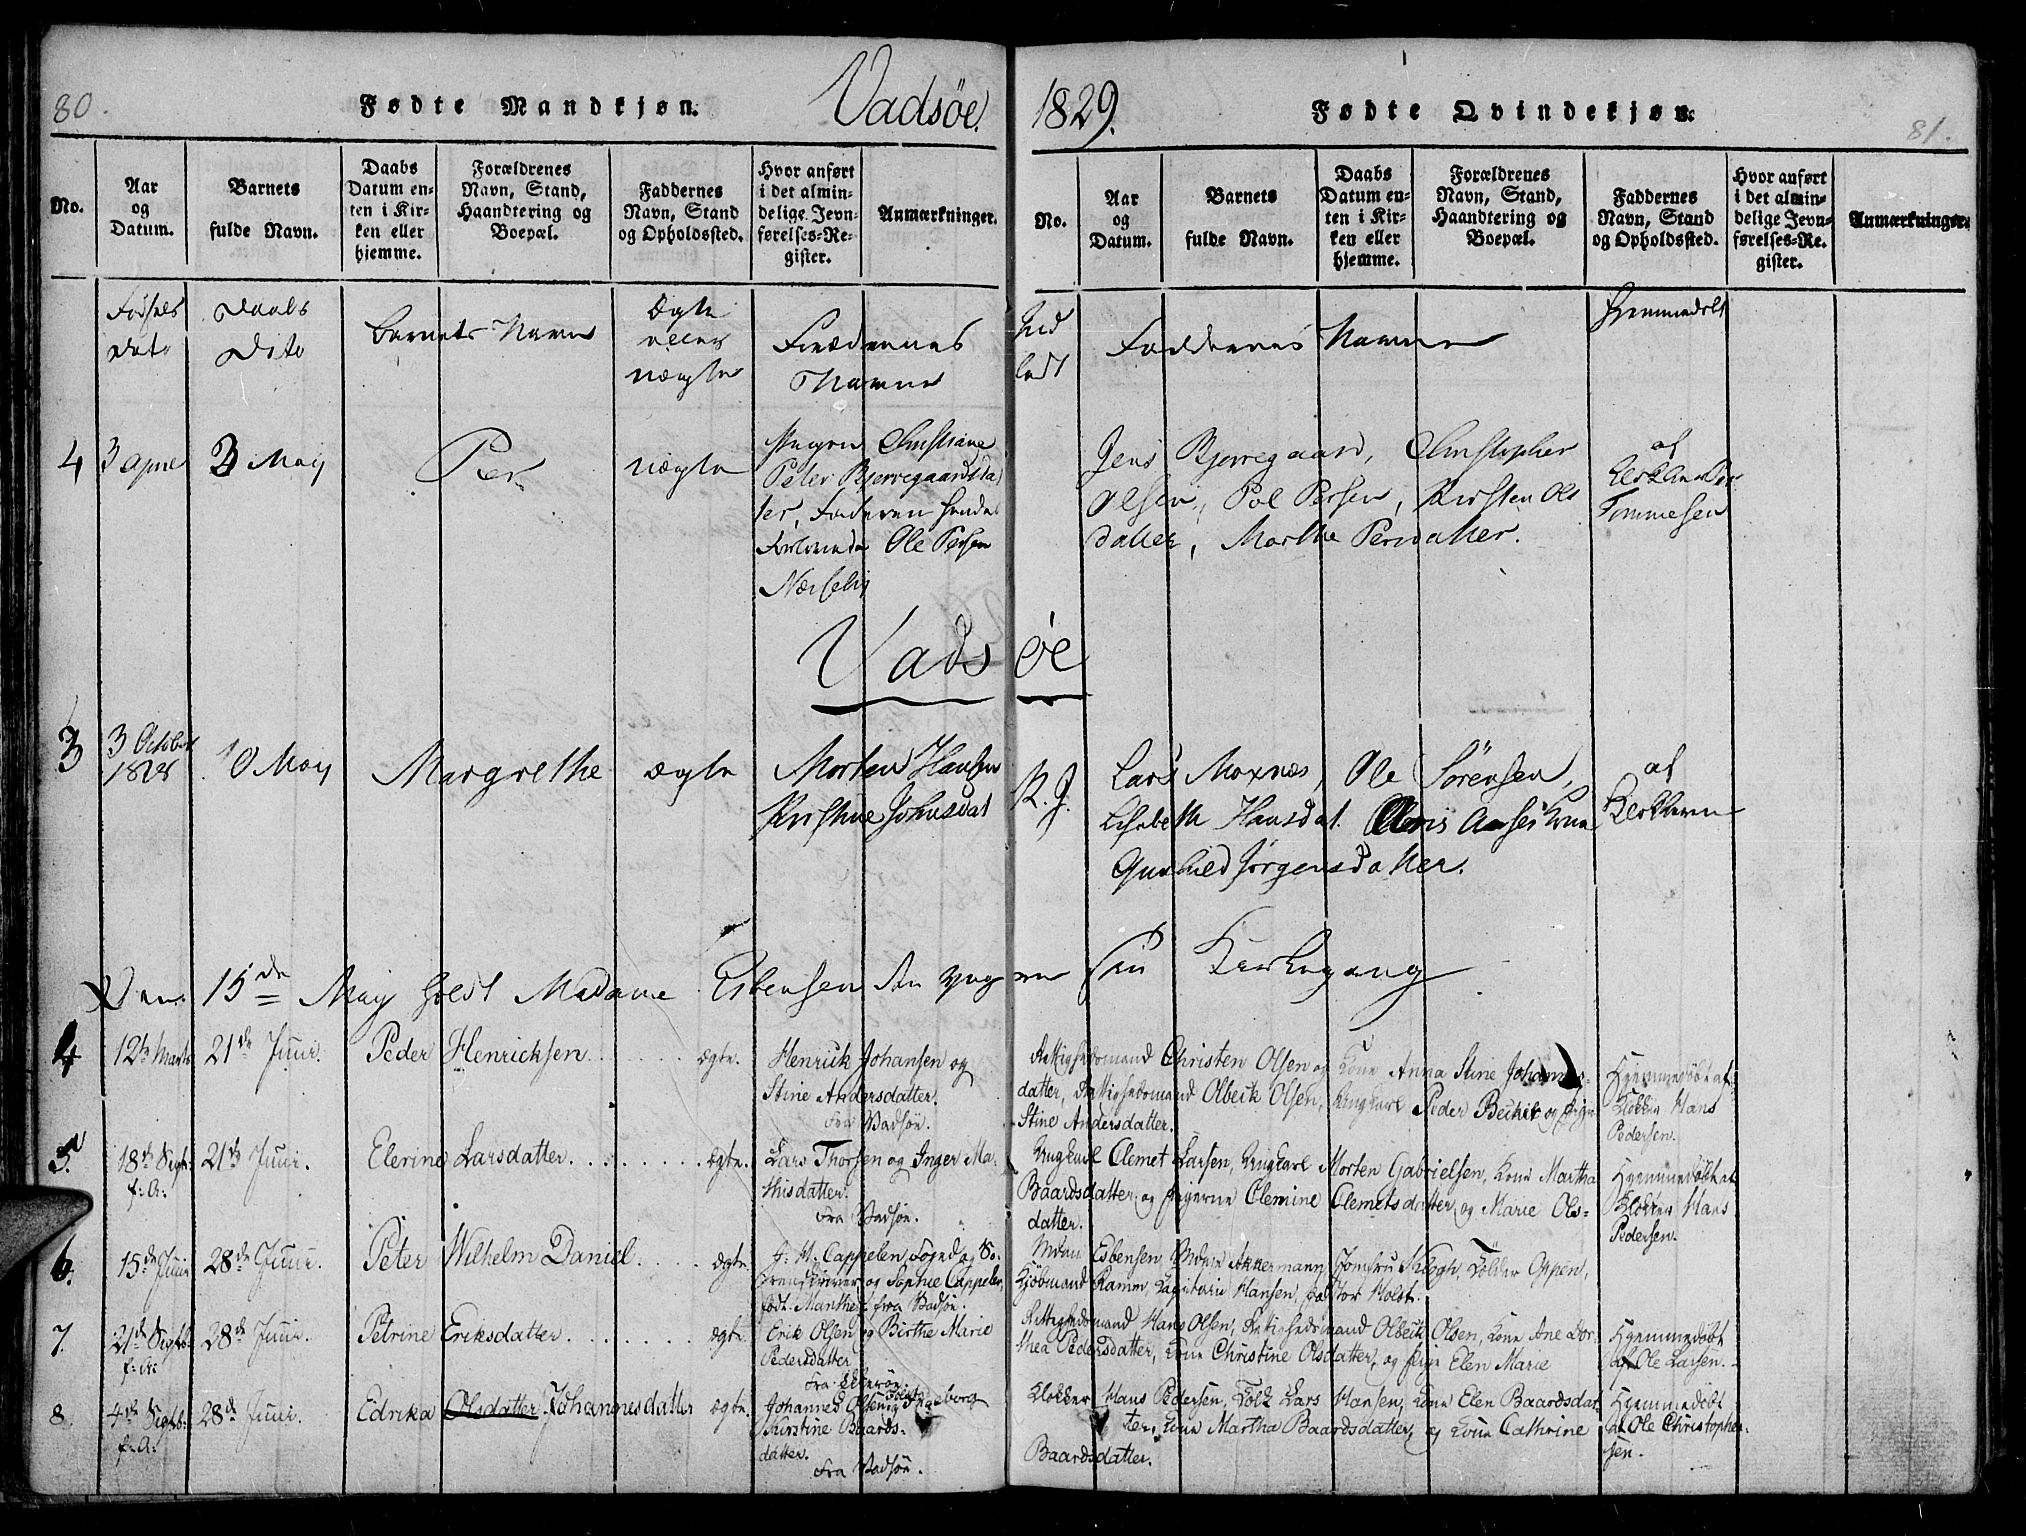 80.
Fødte Mandkjøn.
Vadsøe.
1829.
Fødte Qvindekjøn.
81.
No.
Aar
og
Datum.
Barnets
fulde Navn.
Daabs
Datum en-
ten i Kir-
ken eller
hjemme.
Forældrenes
Navn, Stand,
Haandtering og
Boepæl.
Faddernes
Navn, Stand
og Opholdssted.
Hvor anført
i det almin-
delige Jevn-
førelses-Re-
gister.
Anmærkninger.
No.
Aar
og
Datum.
Barnets
fulde Navn.
Daabs
Datum en-
ten i Kir-
ken eller
hjemme.
Forældrenes
Navn, Stand,
Haandtering og
Boepæl.
Faddernes
Navn, Stand
og Opholdssted.
Hvor anført
i det almin-
delige Jevn-
førelses-Re-
gister.
Anmærkninger.
Fødsels
Dato
Daabs
Dito
Barnets Navn
Ægte
eller
uægte
Forældrenes
Navne
Ind
ledt
Faddernes Navne
Hjemmedøbt
4
3 April
3 May
Per
uægte
Pigen Christiane
Peter Bjerregaardsdat
ter, Faderen hendes
Forlovede Ole Persen
Jens Bjerregaard, Christopher
Olsen, Pol Persen, Kirsten Ols
datter, Marthe Persdatter.
af
Tommesen
Vadsøe
3
3 October
1828
10 May
Margrethe
ægte
Morten Hansen
Kirstine Johnsdat
K. J.
Lars Moxnæs, Ole Sørensen,
Lisbeth Hansdat.
Gunhild Jørgensdatter.
af
Klokkeren
Den 15de May holdt Madame Esbensen sin Kirkegang
4
12te Marts
21de Juni.
Peder Henricksen.
ægte.
Henrick Johansen og
Stine Andersdatter.
Fra Vadsøe.
Rettighedsmand Christen Olsen og Kone Anna Stine Johannes-
datter, Rettighedsmand Olbeck Olsen, Ungkarl Peder Beckit og Pigen
Stine Andersdatter.
Hjemmedøbt af
Klokker Hans
Pedersen.
5.
18de Septb.
f: A:
21de Juni.
Elerine Larsdatter.
ægte.
Lars Thorsen og Inger Ma-
thisdatter.
Fra Vadsøe.
Ungkarl Clemet Larsen, Ungkarl Morten Gabrielsen, Kone Martha
Baardsdatter, og Pigerne Clemine Clemetsdatter og Marie Ols-
datter.
Hjemmedøbt af
Klokker Hans
Pedersen.
6.
15de Juni
28de Juni.
Peter Wilhelm Daniel.
ægte.
J: M. Cappelen Foged og So-
renskriver og Sophie Cappelen,
født Manthe fra Vadsøe.
Mdm Esbensen, Mdm Akkermann, Jomfru Kiegh, Tolder Oppen,
Kjøbmand Ramm, Sagfører Hansen, Pastor Holst.
7.
21de Septb.
f: A:
28de Juni.
Petrine Eriksdatter.
ægte.
Erik Olsen og Birthe Marie
Pedersdatter
Rettighedsmand Hans Olsen, Rettighedsmand Olbeck Olsen, Kone Ane Dor-
thea Pedersdatter, Kone Christine Olsdatter, og Pige Elen Marie
Hjemmedøbt
af Ole Larsen.
8.
4de Septb.
f: A:
28de Juni.
Edrika Olsdatter Johannesdatter
ægte.
Johannes Olsen og Ingeborg
Kirstine Baards-
datter.
Fra Vadsøe.
Klokker Hans Pedersen, Tolk Lars Hansen, Kone Elen Baardsdat-
ter, Kone Martha Baardsdatter, og Kone Cathrine
Baardsdatter.
Hjemmedøbt
af Ole Christopher-
sen.